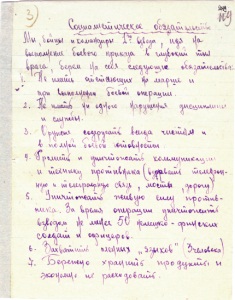 3
Социалистическое обязательство
Мы бойцы и командиры 2го взвода, идя на
выполнение боевого приказа в глубокий тыл
врага, берем на себя следующие обязательства:
1. Не иметь отстающих на марше и
при выполнении боевой операции.
2. Не иметь ни одного нарушения дисциплины
и службы.
3. Оружие содержать всегда чистым и
в полной боевой готовности
4. Громить и уничтожать коммуникации
и технику противника (взрывать телефон-
ную и телеграфную связь, мосты, дороги)
5. Уничтожать живую силу против-
ника. За время операции уничтожить
взводом не менее 50 финских
солдат и офицеров
6. Захватить "языков"
7. Бережно хранить продукты и
экономно их расходовать.